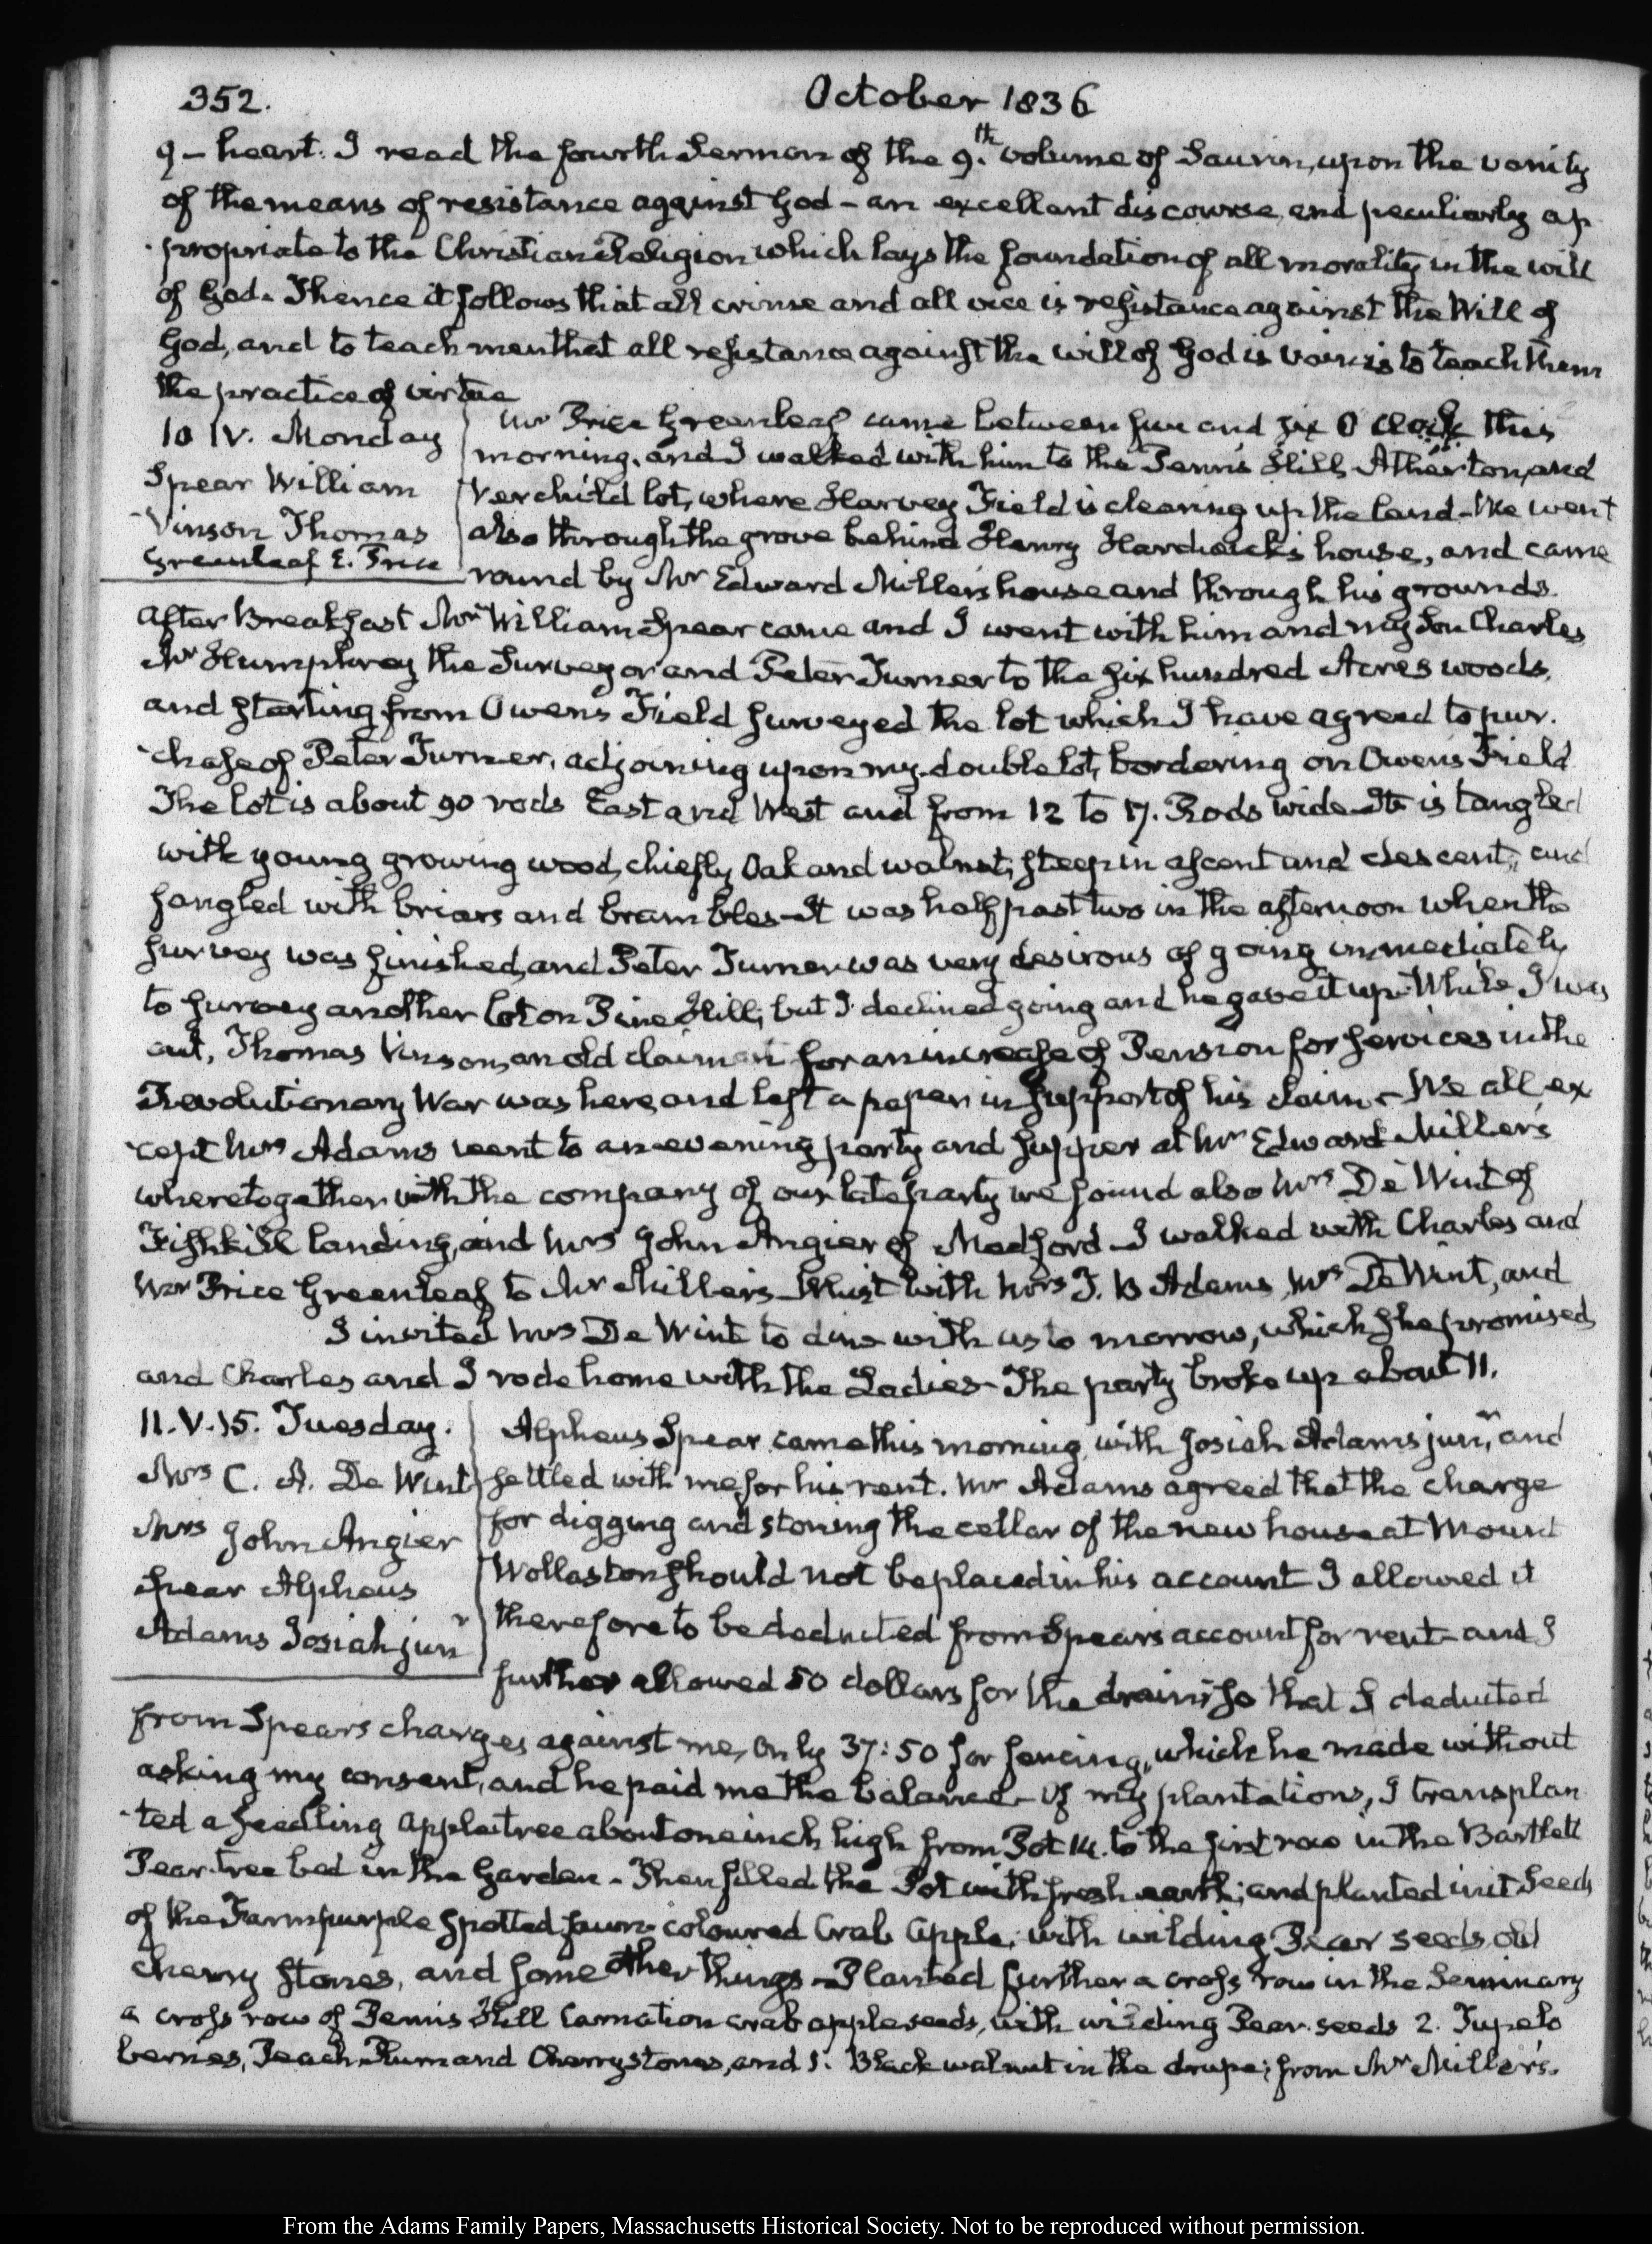 352. October 1836
9 – heart. I read the fourth Sermon of the 9.th volume of Saurin, upon the vanity
of the means of resistance against God – an excellent discourse, and peculiarly ap-
-propriate to the Christian Religion which lays the foundation of all morality in the will
of God. Thence it follows that all crime and all vice is resistance against the Will of
God, and to teach men that all resistance against the will of God is vain is to teach them
the practice of virtue
10 IV. Monday
Spear William
Vinson Thomas
Greenleaf E. Price
Mr Price Greenleaf came between five and six O'Clock this
morning, and I walked with him to the Penn's Hill, Atherton, and
Verchild lot, where Harvey Field is clearing up the land – We went
also through the grove behind Henry Hardwick's house, and came
round by Mr Edward Miller's house and through his grounds.
After Breakfast Mr William Spear came and I went with him and my Son Charles,
Mr Humphrey the Surveyor and Peter Turner to the six hundred Acres woods,
and starting from Owens's Field surveyed the lot which I have agreed to pur-
-chase of Peter Turner, adjoining upon my double lot, bordering on Owens's Field
The lot is about 90 rods East and West and from 12 to 17. Rods wide – It is tangled
with young growing wood, chiefly Oak and walnut, steep in ascent and descent, and
fangled with briars and brambles – It was half past two in the afternoon when the
survey was finished, and Peter Turner was very desirous of going immediately
to survey another lot on Pine Hill; but I declined going and he gave it up – While I was
out, Thomas Vinson, an old claimant for an increase of Pension for services in the
Revolutionary War was here, and left a paper in support of his claim – We all ex-
-cept Mrs Adams went to an evening party and supper at Mr Edward Miller's
where together with the company of our late party we found also Mrs De Wint of
Fishkill landing, and Mrs John Angier of Medford – I walked with Charles and
Mr Price Greenleaf to Mr Miller's – Whist with Mrs T. B Adams, Mrs De Wint, and
I invited Mrs De Wint to dine with us to morrow, which she promised
and Charles and I rode home with the Ladies – The party broke up about 11.
11. V. 15. Tuesday.
Mrs C. A. De Wint
Mrs John Angier
Spear Alpheus
Adams Josiah junr
Alpheus Spear came this morning, with Josiah Adams junr, and
settled with me for his rent. Mr Adams agreed that the charge
for digging and stoning the cellar of the new house at Mount
Wollaston should not be placed in his account I allowed it
therefore to be deducted from Spear's account for rent – and I
further allowed 50 dollars for the drain; so that I deducted
from Spear's charges against me, only 37:50 for fencing, which he made without
asking my consent, and he paid me the balance – Of my plantations, I transplan-
-ted a seedling apple tree about one inch high from Pot 14. to the first row in the Bartlett
Pear-tree bed in the Garden – Then filled the Pot with fresh earth; and planted in it Seeds
of the Farm purple spotted fawn-coloured Crab Apple; with wilding Pear seeds, old
cherry stones, and some other things – Planted further a cross row in the Seminary
a cross row of Penn's Hill Carnation crab apple seeds, with wilding Pear seeds 2. Tupelo
berries, Peach Plum and Cherry stones, and 1. Black walnut in the drupe; from Mr Miller's.
From the Adams Family Papers, Massachusetts Historical Society. Not to be reproduced without permission.